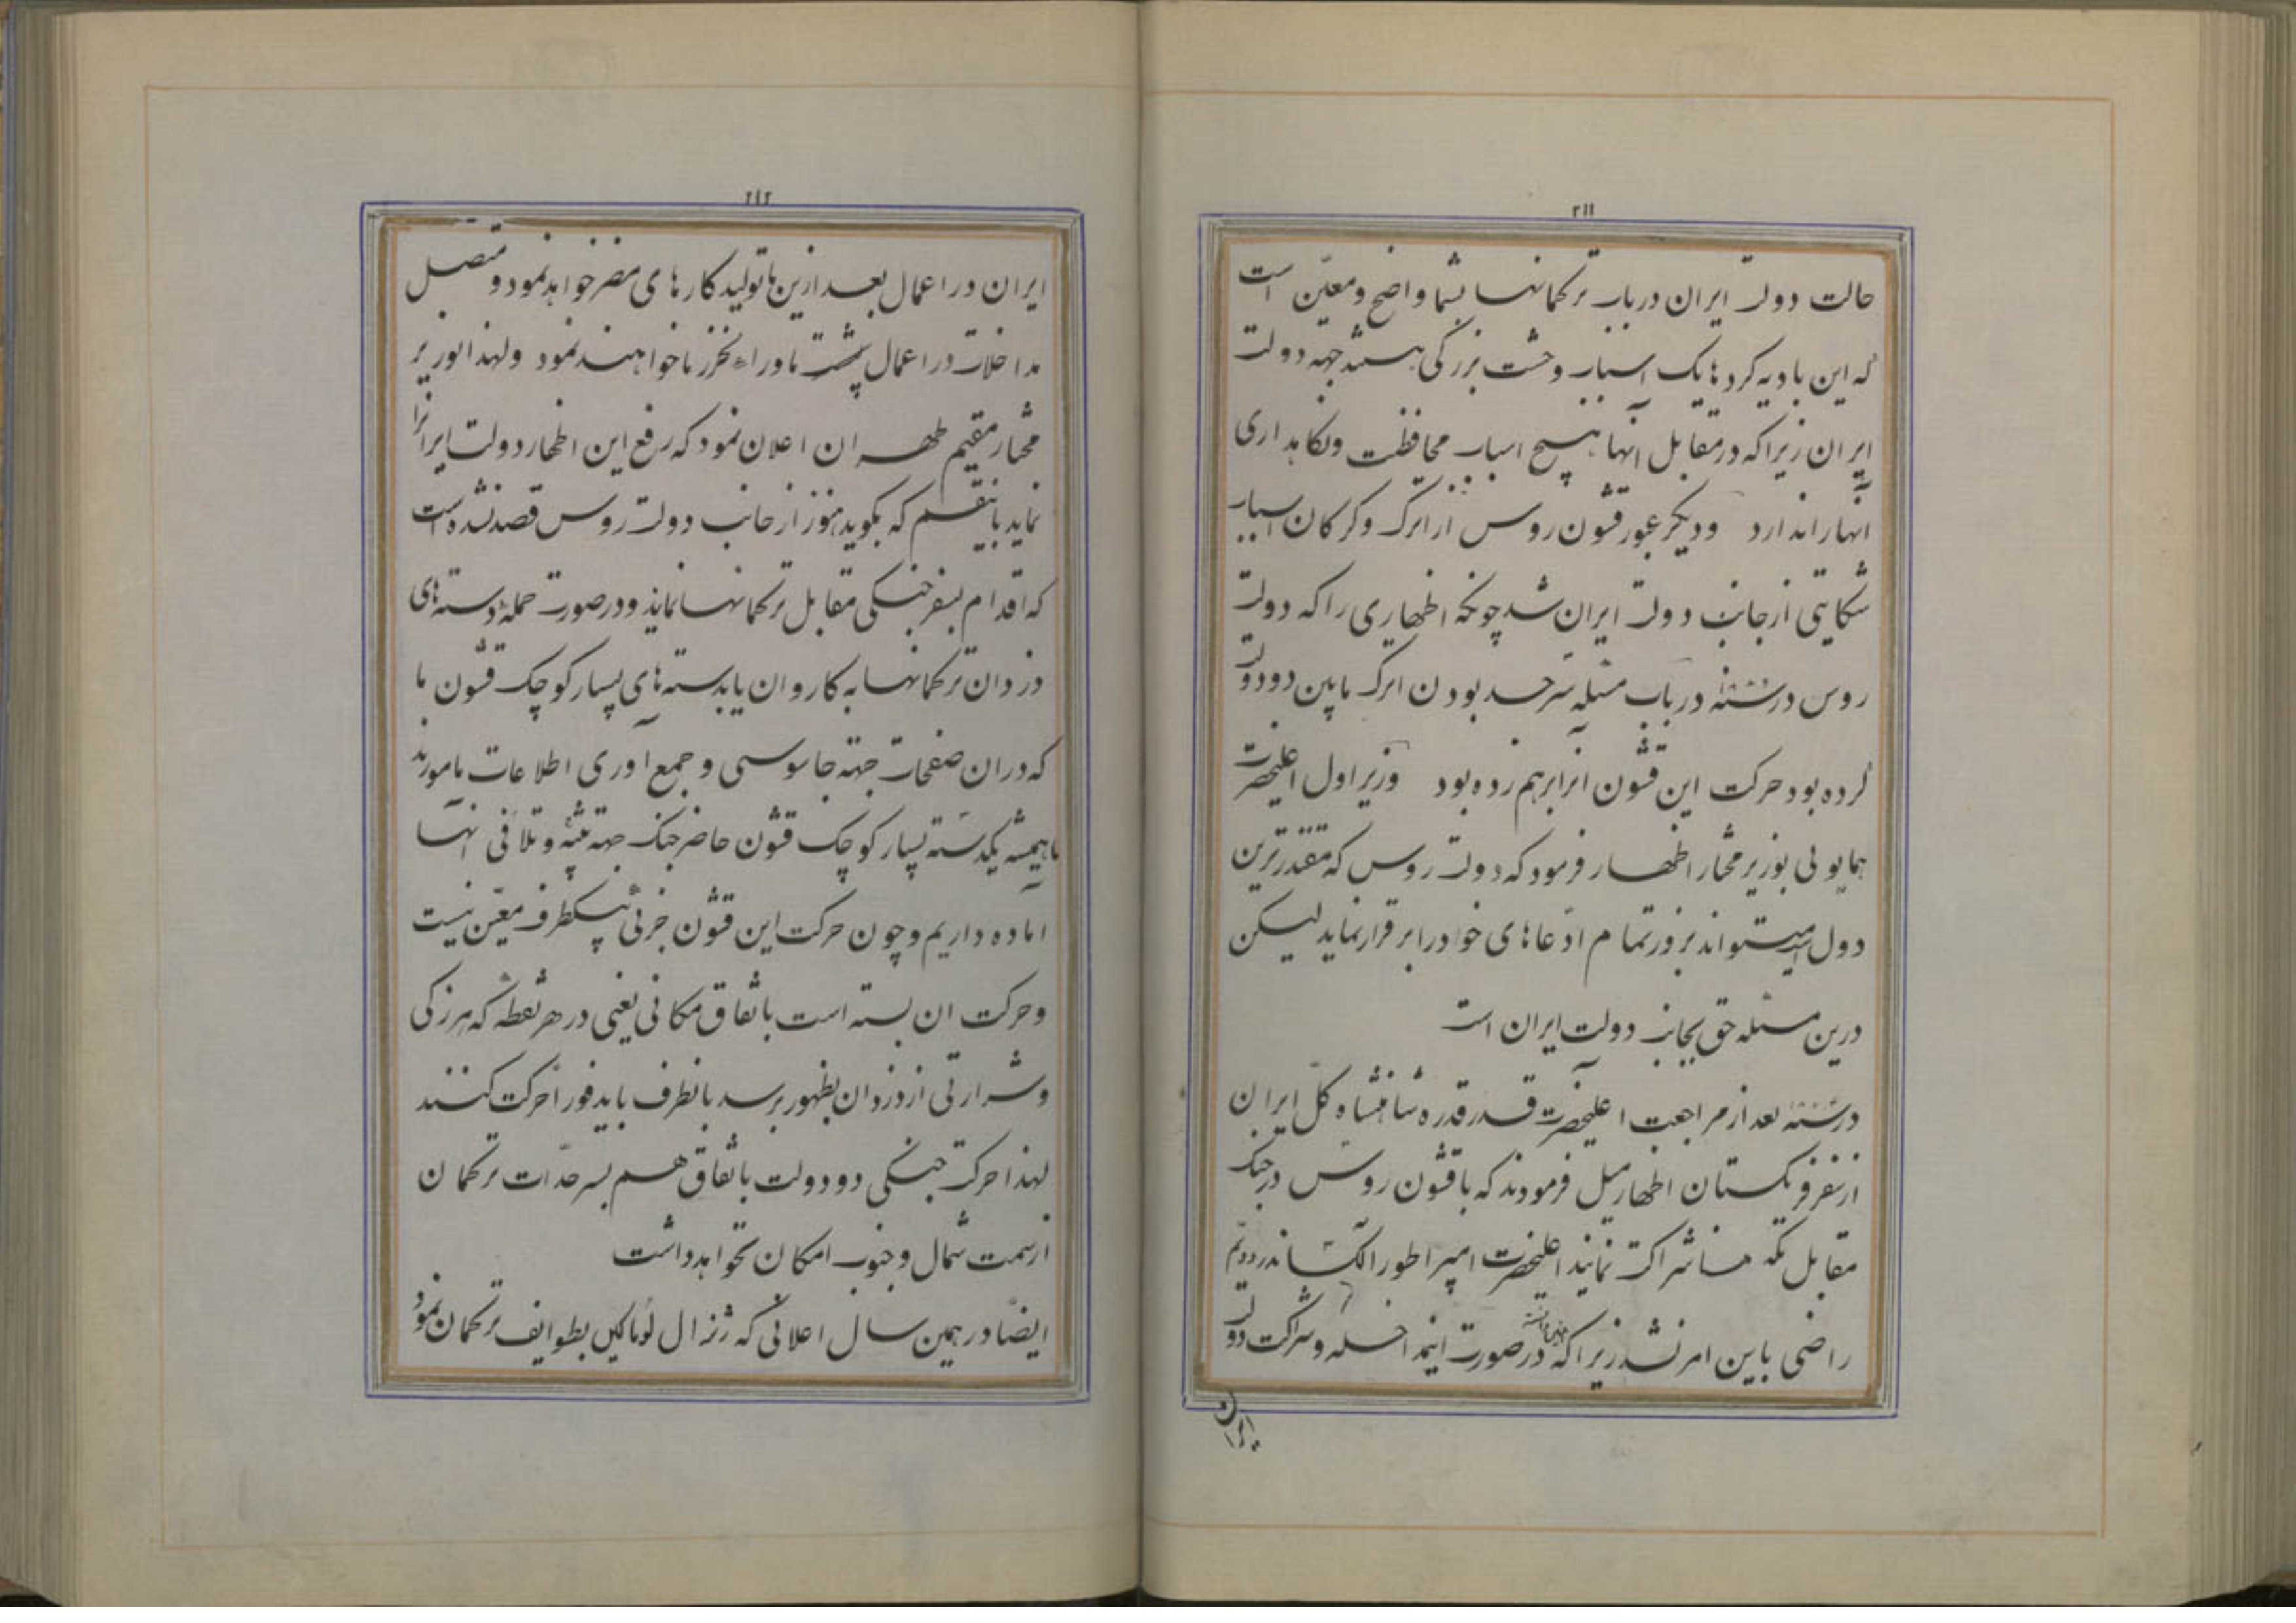 ۲۱۱
حالت دولت ایران درباب ترکمانها بشما واضح و معیّن است
که این بادیه کردها یک اسباب وحشت بزرکی هستند جهه دولت
ایران زیرا که در مقابل آنها هیچ اسباب محافظت ونکاهداری
آنهارا ندارد و دیکر عبور قشون روس از اترک و کرکان اسباب
شکایتی از جانب دولت ایران شد چونکه اظهاری را که دولت
روس در سنه در باب مسئله سرحد بودن اترک مابین دو دولت
کرده بود حرکت این قشون آنرا برهم زده بود وزیر اول اعلیحضرت
همایونی بوزیر مختار اظهار فرمود که دولت روس که مقتدرترین
دول است میتواند بزور تمام ادّعاهای خودرا برقرار نماید لیکن
درین مسئله حق بجانب دولت ایران است
در سنه بعد از مراجعت اعلیحضرت قدر قدره شاهنشاه کلّ ایران
از سفر فرنکستان اظهار میل فرمودند که با قشون روس در جنک
مقابل تکه ها شراکت نمایند اعلیحضرت امپراطور الکساندر دویّم
راضی باین امر نشد زیرا که در صورت اینمداخله وشراکت دولت
ایران در اعمال بعد ازین ها تولید کارهای مضر خواهد نمود و متصل
مداخلات در اعمال پشت ماوراء بخزر ما خواهند نمود ولهذا بوزیر
مختار مقیم طهران اعلان نمود که رفع این اظهار دولت ایرانرا
نماید باینقسم که بکوید هنوز از جانب دولت روس قصد نشده است
که اقدام بسفر جنکی مقابل ترکمانها نماید ودر صورت حملهٔ دسته های
دزدان ترکمانها به کاروان یا بدسته های بسیار کوچک قشون ما
که دران صفحات جهته جاسوسی و جمع آوری اطلاعات مامورند
ما همیشه یکدسته بسیار کوچک قشون حاضر جنک جهته تنبیه و تلافی آنها
آماده داریم و چون حرکت این قشون جزئی بیکطرف معیّن نیست
وحرکت ان بسته است باتفاق مکانی یعنی در هر نقطه که هرزکی
وشرارتی از دزدان بظهور برسد بآنطرف باید فوراً حرکت کنند
لهذا حرکت جنکی دو دولت باتفاق هم بسرحدّات ترکمان
از سمت شمال و جنوب امکان نخواهد داشت
ایضاً در همین سال اعلانی که ژنرال لوماکین بطوایف ترکمان نمود
۲۱۲